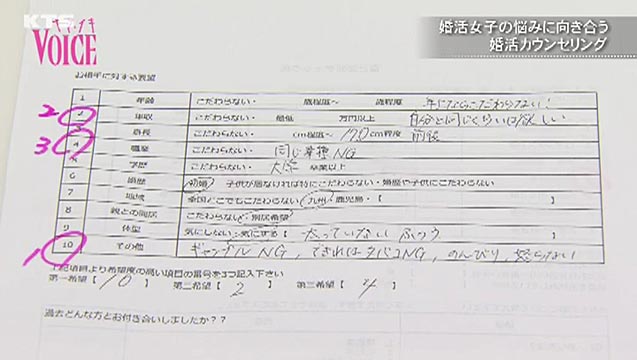 KTS
ナマ・イキ
VOICE
婚活女子の悩みに向き合う
婚活カウンセリング
お相手に対する希望
1 年齢 こだわらない・ 歳程度～ 歳程度
2 2 年収 こだわらない・ 最低 万円以上 自分と同じくらいは欲しい
3 身長 こだわらない・ cm程度～ 170cm程度 前後
3 4 職業 こだわらない・ 同じ業種NG
5 学歴 こだわらない・ 大卒 卒業以上
6 婚歴 初婚・ 子供が居なければ特にこだわらない・婚歴や子供にこだわらない
7 地域 全国どこでもこだわらない・九州・鹿児島・【 】
8 親との同居 こだわらない・別居希望
9 体型 気にしない・気にする【 太っていない ふつう 】
1 10 その他 ギャンブルNG, できればタバコNG, のんびり, 怒らない
上記項目より希望度の高い項目の番号を3つ記入下さい
第一希望【 10 】 第二希望【 2 】 第三希望【 4 】
過去どんな方とお付き合いしましたか？？